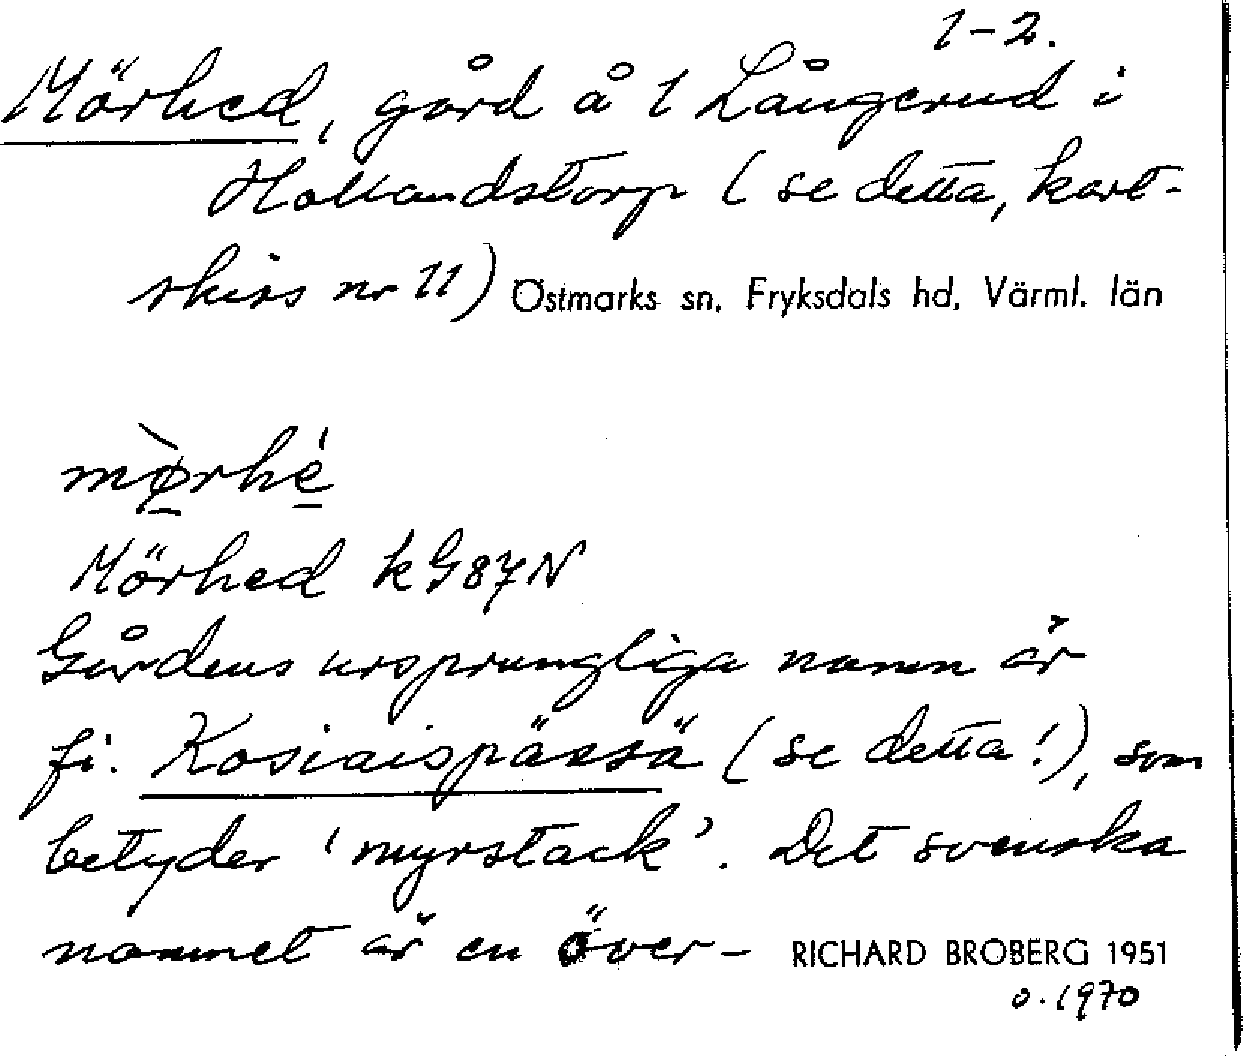 1-2.
Mörhed, gård å 1 Långerud i
Hollandstorp (se detta, kart-
skiss nr 11) Östmarks sn, Fryksdals hd, Värml. län
mø̀rhé
Mörhed kG87N
Gårdens ursprungliga namn är
fi. Kosiaispässä (se detta!), som
betyder 'myrstack'. Det svenska
namnet är en över-
RICHARD BROBERG 1951
o. 1970